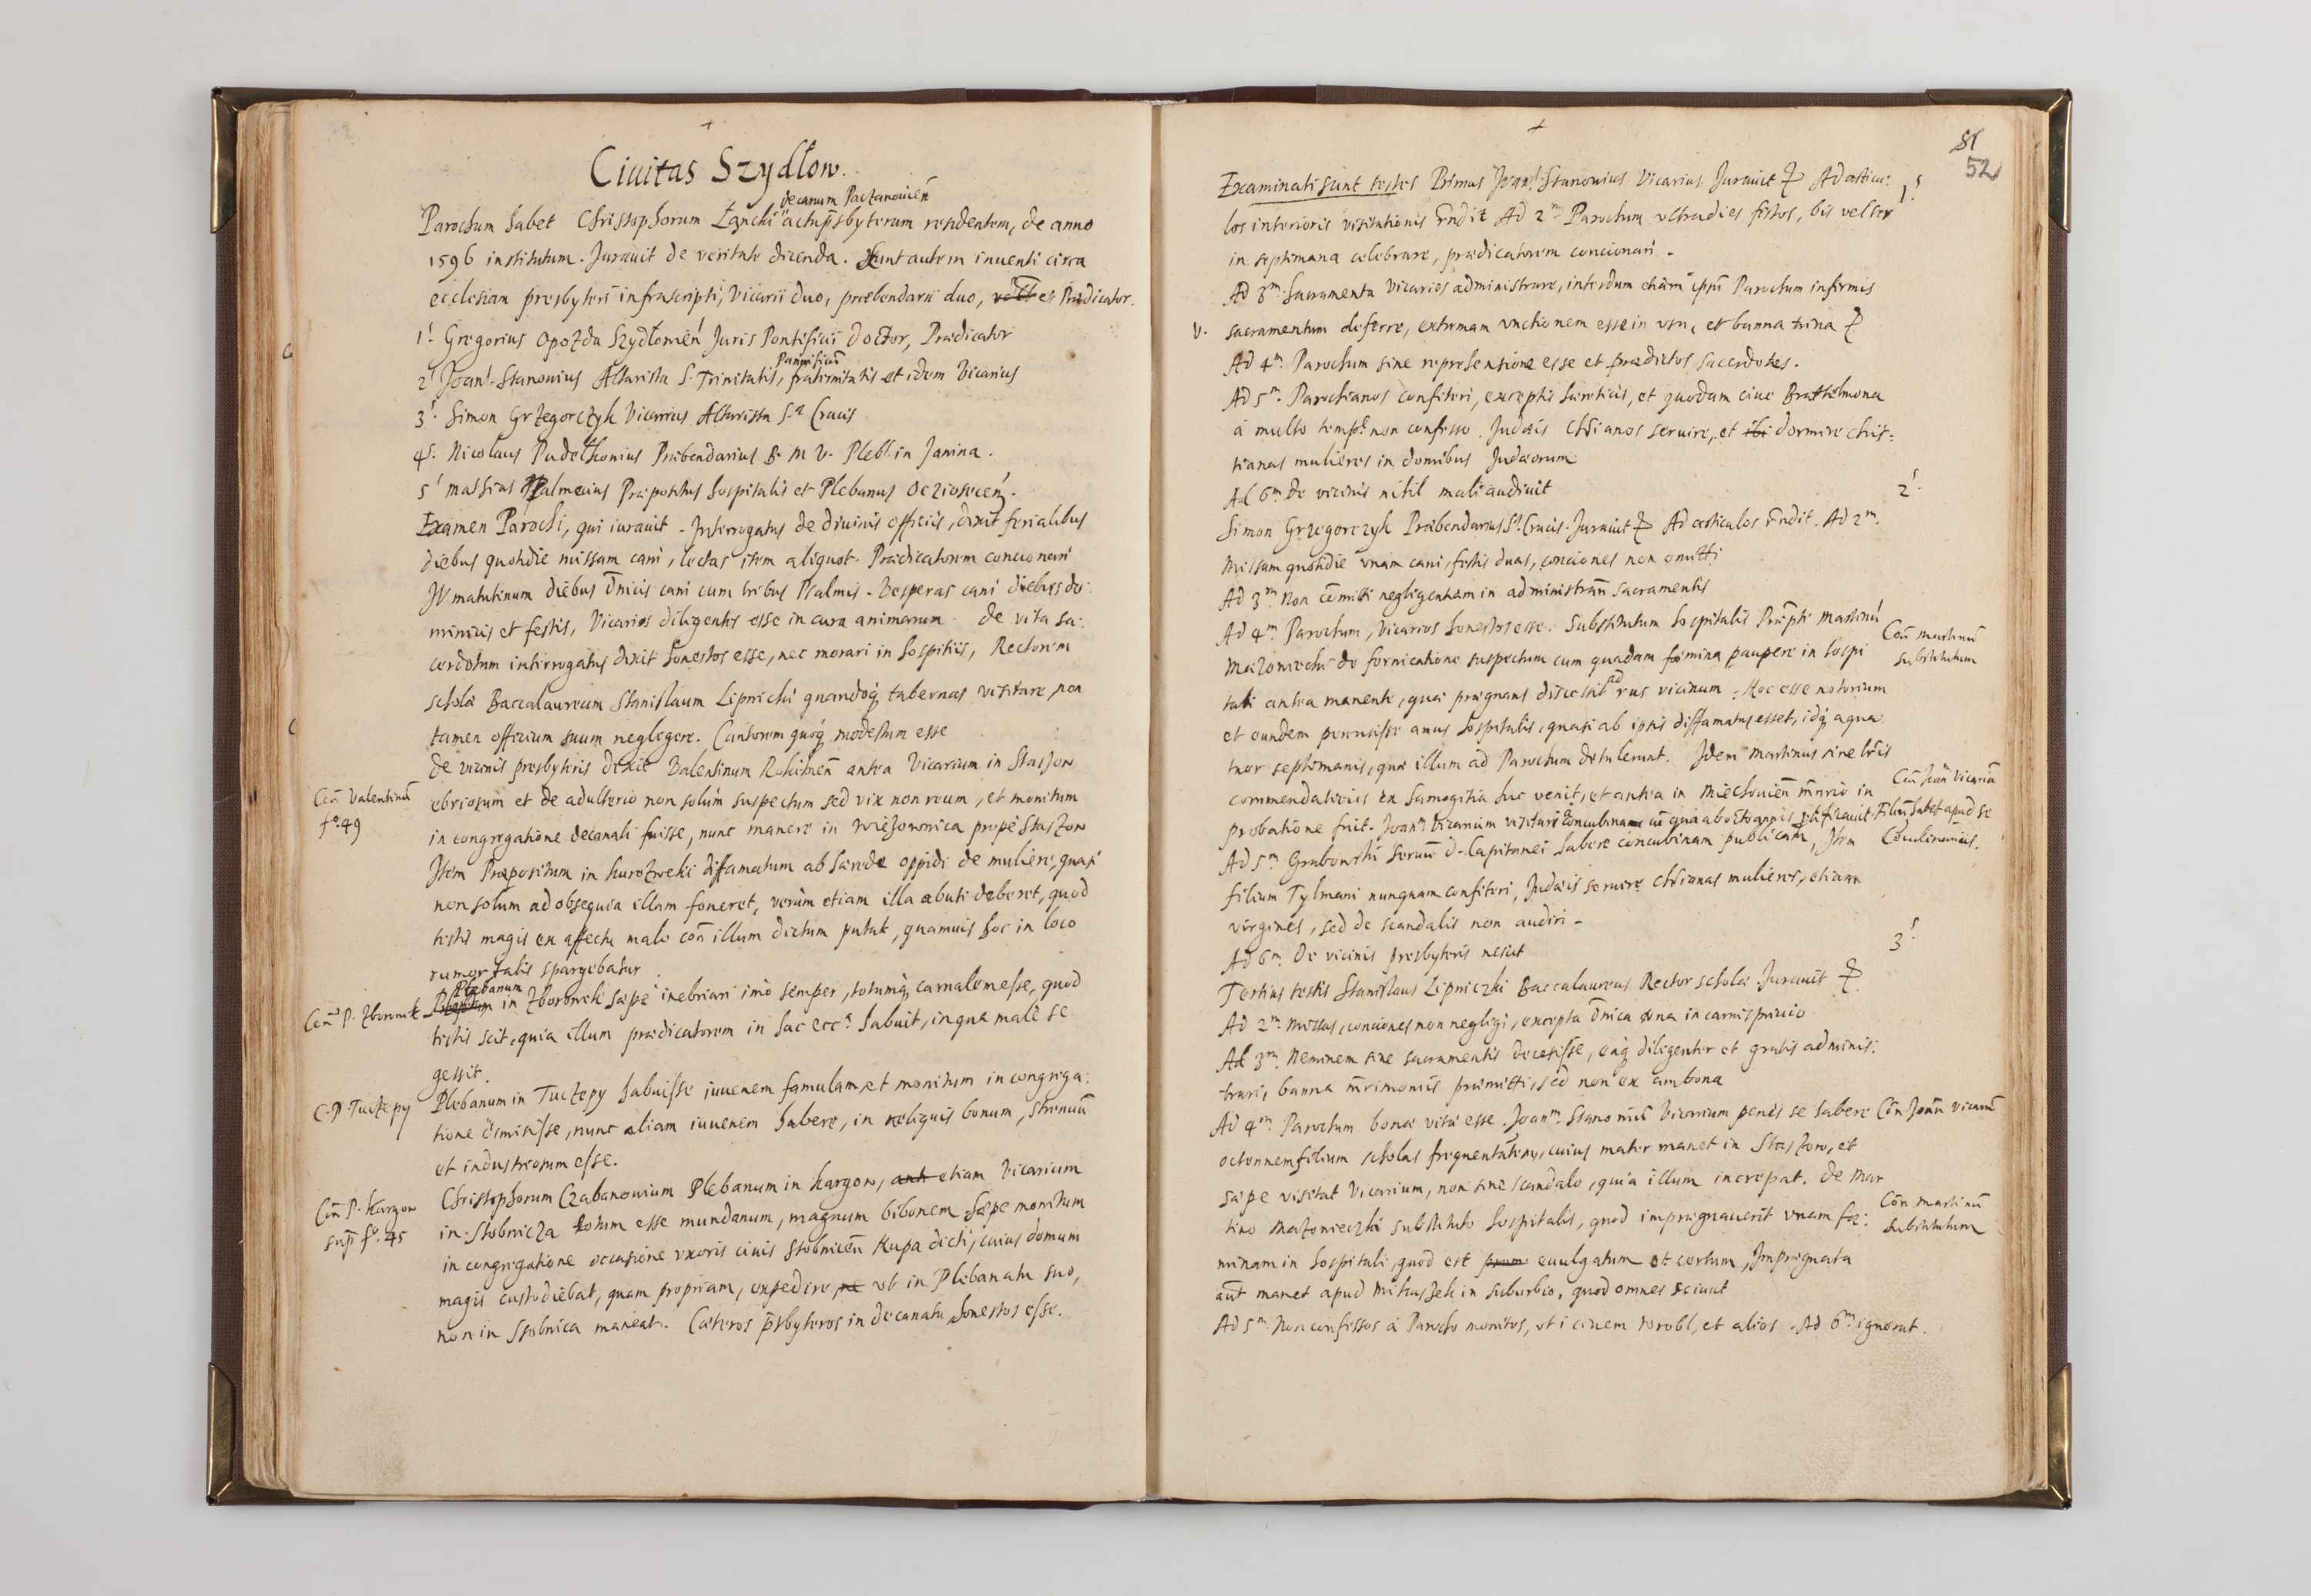 +
Ciuitas Szydlow.
decanum Paczanouien̄
Parochum habet Christophorum Łącki actu p̄sbyterum residentem, de anno
1596 institutum. Jurauit de veritate dicenda. Sunt autem inuenti circa
ecclesiam presbyteri infrascripti, Vicarii duo, præbendarii duo, et Prædicator.
1! Gregorius Opozda Szydlouień Juris Pontificii Doctor, Prædicator
Pannificum
2! Joan! Stanouius Altarista S. Trinitatis, fraternitatis et idem Vicarius
3! Simon Grzegorczyk Vicarius Altarista S.æ Crucis
4! Nicolaus Pudelkonius Præbendarius B. M. V. Pleb! in Janina.
5! Mathias Palmeius Præpositus hospitalis et Plebanus
Examen Parochi, qui iurauit. Interrogatus de diuinis officiis, dixit ferialibus
diebus quotidie missam cani, lectas item aliquot. Prædicatorem concionari
Matutinum diebus D̄nicis cani cum tribus Psalmis. Vesperas cani diebus do:
minicis et festis, Vicarios diligentes esse in cura animarum. De vita sa:
cerdotum interrogatus dixit honestos esse, nec morari in hospitiis, Rectorem
scholæ Baccalaureum Stanislaum Lipnicki quandoq; tabernas visitare, non
tamen officium suum neglegere. Cantorem quoq; modestum esse
De vicinis presbyteris dixit Valentinum antea Vicarium in Staszow
Con̄ Valentinū
fo. 49
ebriosum et de adulterio non solùm suspectum sed vix non reum, et monitum
in congregatione decanali fuisse, nunc manere in Wiezownica prope Staszow
Item Præpositum in Kurozweki diffamatum ab hærede oppidi de muliere, quasi
non solum ad obsequia illam foueret, verùm etiam illa abuti deberet, quod
testis magis ex affectu malo con̄ illum dictum putat, quamuis hoc in loco
rumor talis spargebatur.
Plebanum
Con̄ P. Zborowek
in Zborowek sæpe inebriari imò semper, totumq; carnalem esse, quod
testis scit, quia illum prædicatorem in hac ecc.a habuit, in qua malè se
gessit.
C. P. Tuczepy
Plebanum in Tuczepy habuisse iuuenem famulam, et monitum in congrega:
tione dimisisse, nunc aliam iuuenem habere, in reliquis bonum, strenuū
et industriosum esse.
Con̄ P. Kargow
sup̄ fo. 45
Christophorum Czabanouium Plebanum in Kargow, etiam Vicarium
in Stobnicza totum esse mundanum, magnum bibonem, sæpe monitum
in congregatione occasione vxoris ciuis Stobnicen̄ Kupa dicti, cuius domum
magis custodiebat, quam propriam, expedire, vt in Plebanatu suo,
non in Stobnica maneat. Cæteros p̄sbyteros in decanatu honestos esse.
+
51
52
Examinati sunt testes Primus Joan! Stanouius Vicarius Jurauit Ad articu: 1!
los interioris visitationis r̄ndit Ad 2m Parochum vltra dies festos, bis vel ter
in septimana celebrare, prædicatorem concionari.
Ad 3m Sacramenta Vicarios administrare, interdum etiam ip̄m Parochum infirmis
V.
sacramentum deferre, extremam vnctionem esse in vsu, et banna trina
Ad 4m Parochum sine reprehensione esse et prædictos sacerdotes.
Ad 5m Parochianos confiteri, exceptis hæreticis, et quodam ciue
à multo temp.e non confesso. Judæis Ch̄rianos seruire, et dormire chris:
tianas mulieres in domibus Judæorum
Ad 6m De vicinis nihil mali audiuit
2!
Simon Grzegorczyk Præbendarius S. Crucis. Jurauit Ad articulos r̄ndit. Ad 2m.
Missam quotidie vnam cani, festis duas, conciones non omitti
Ad 3m Non cōmitti negligentiam in administran̄ sacramentis
Ad 4m Parochum, Vicarios honestos esse. Substitutum hospitalis Præp̄ti Martinū
Con̄ Martinū
substitutum
Mazowiecki de fornicatione suspectum cum quadam fœmina paupere in hospi
tali antea manente, quæ prægnans discessit ad rus vicinum. Hoc esse notorium
et eundem percussisse anus hospitalis, quasi ab ipsis diffamatus esset, idq; a qua
tuor septimanis, quæ illum ad Parochum detulerunt. Idem Martinus sine l̄ris
commendatitiis ex Samogitia huc venit, et antea in Miechouien̄ m̄nrio in
Con̄ Joan̄ Vicariū
Filiū habet apud se
probatione fuit. Joanem Vicarium visitari a concubina cū qua ab octo annis
Con̄ concubinarios.
Ad 5m Grabowski seruū D. Capitanei habere concubinam publicam, Item
filium Tylmani nunquam confiteri, Judæis seruire Ch̄rianas mulieres, etiam
virgines, sed de scandalis non audiri.
Ad 6m De vicinis presbyteris nescit
3!
Tertius testis Stanislaus Lipniczki Baccalaureus Rector scholæ. Jurauit
Ad 2m Missas, conciones non negligi, excepta D̄nica vna in carnispriuio
Ad 3m Neminem sine sacramentis decessisse, eaq; diligenter et gratis adminis:
trari, banna m̄rimoniis præmitti, sed non ex ambona
Ad 4m Parochum bonæ vitæ esse. Joanm Stanouiū Vicarium penès se habere
Con̄ Joan̄ Vicariū
octennem filium scholas frequentantem, cuius mater manet in Staszow, et
sæpe visitat Vicarium, non sine scandalo, quia illum increpat. De Mar
Con̄ Martinū
substitutum
tino Mazowieczki substituto hospitalis, quod imprægnauerit vnam fœ:
minam in hospitali, quod est euulgatum et certum, Imprægnata
aūt manet apud Mikuszek in suburbio, quod omnes sciunt
Ad 5m Non confessos à Parocho monitos, vti ciuem Wrobl, et alios. Ad 6m ignorat.